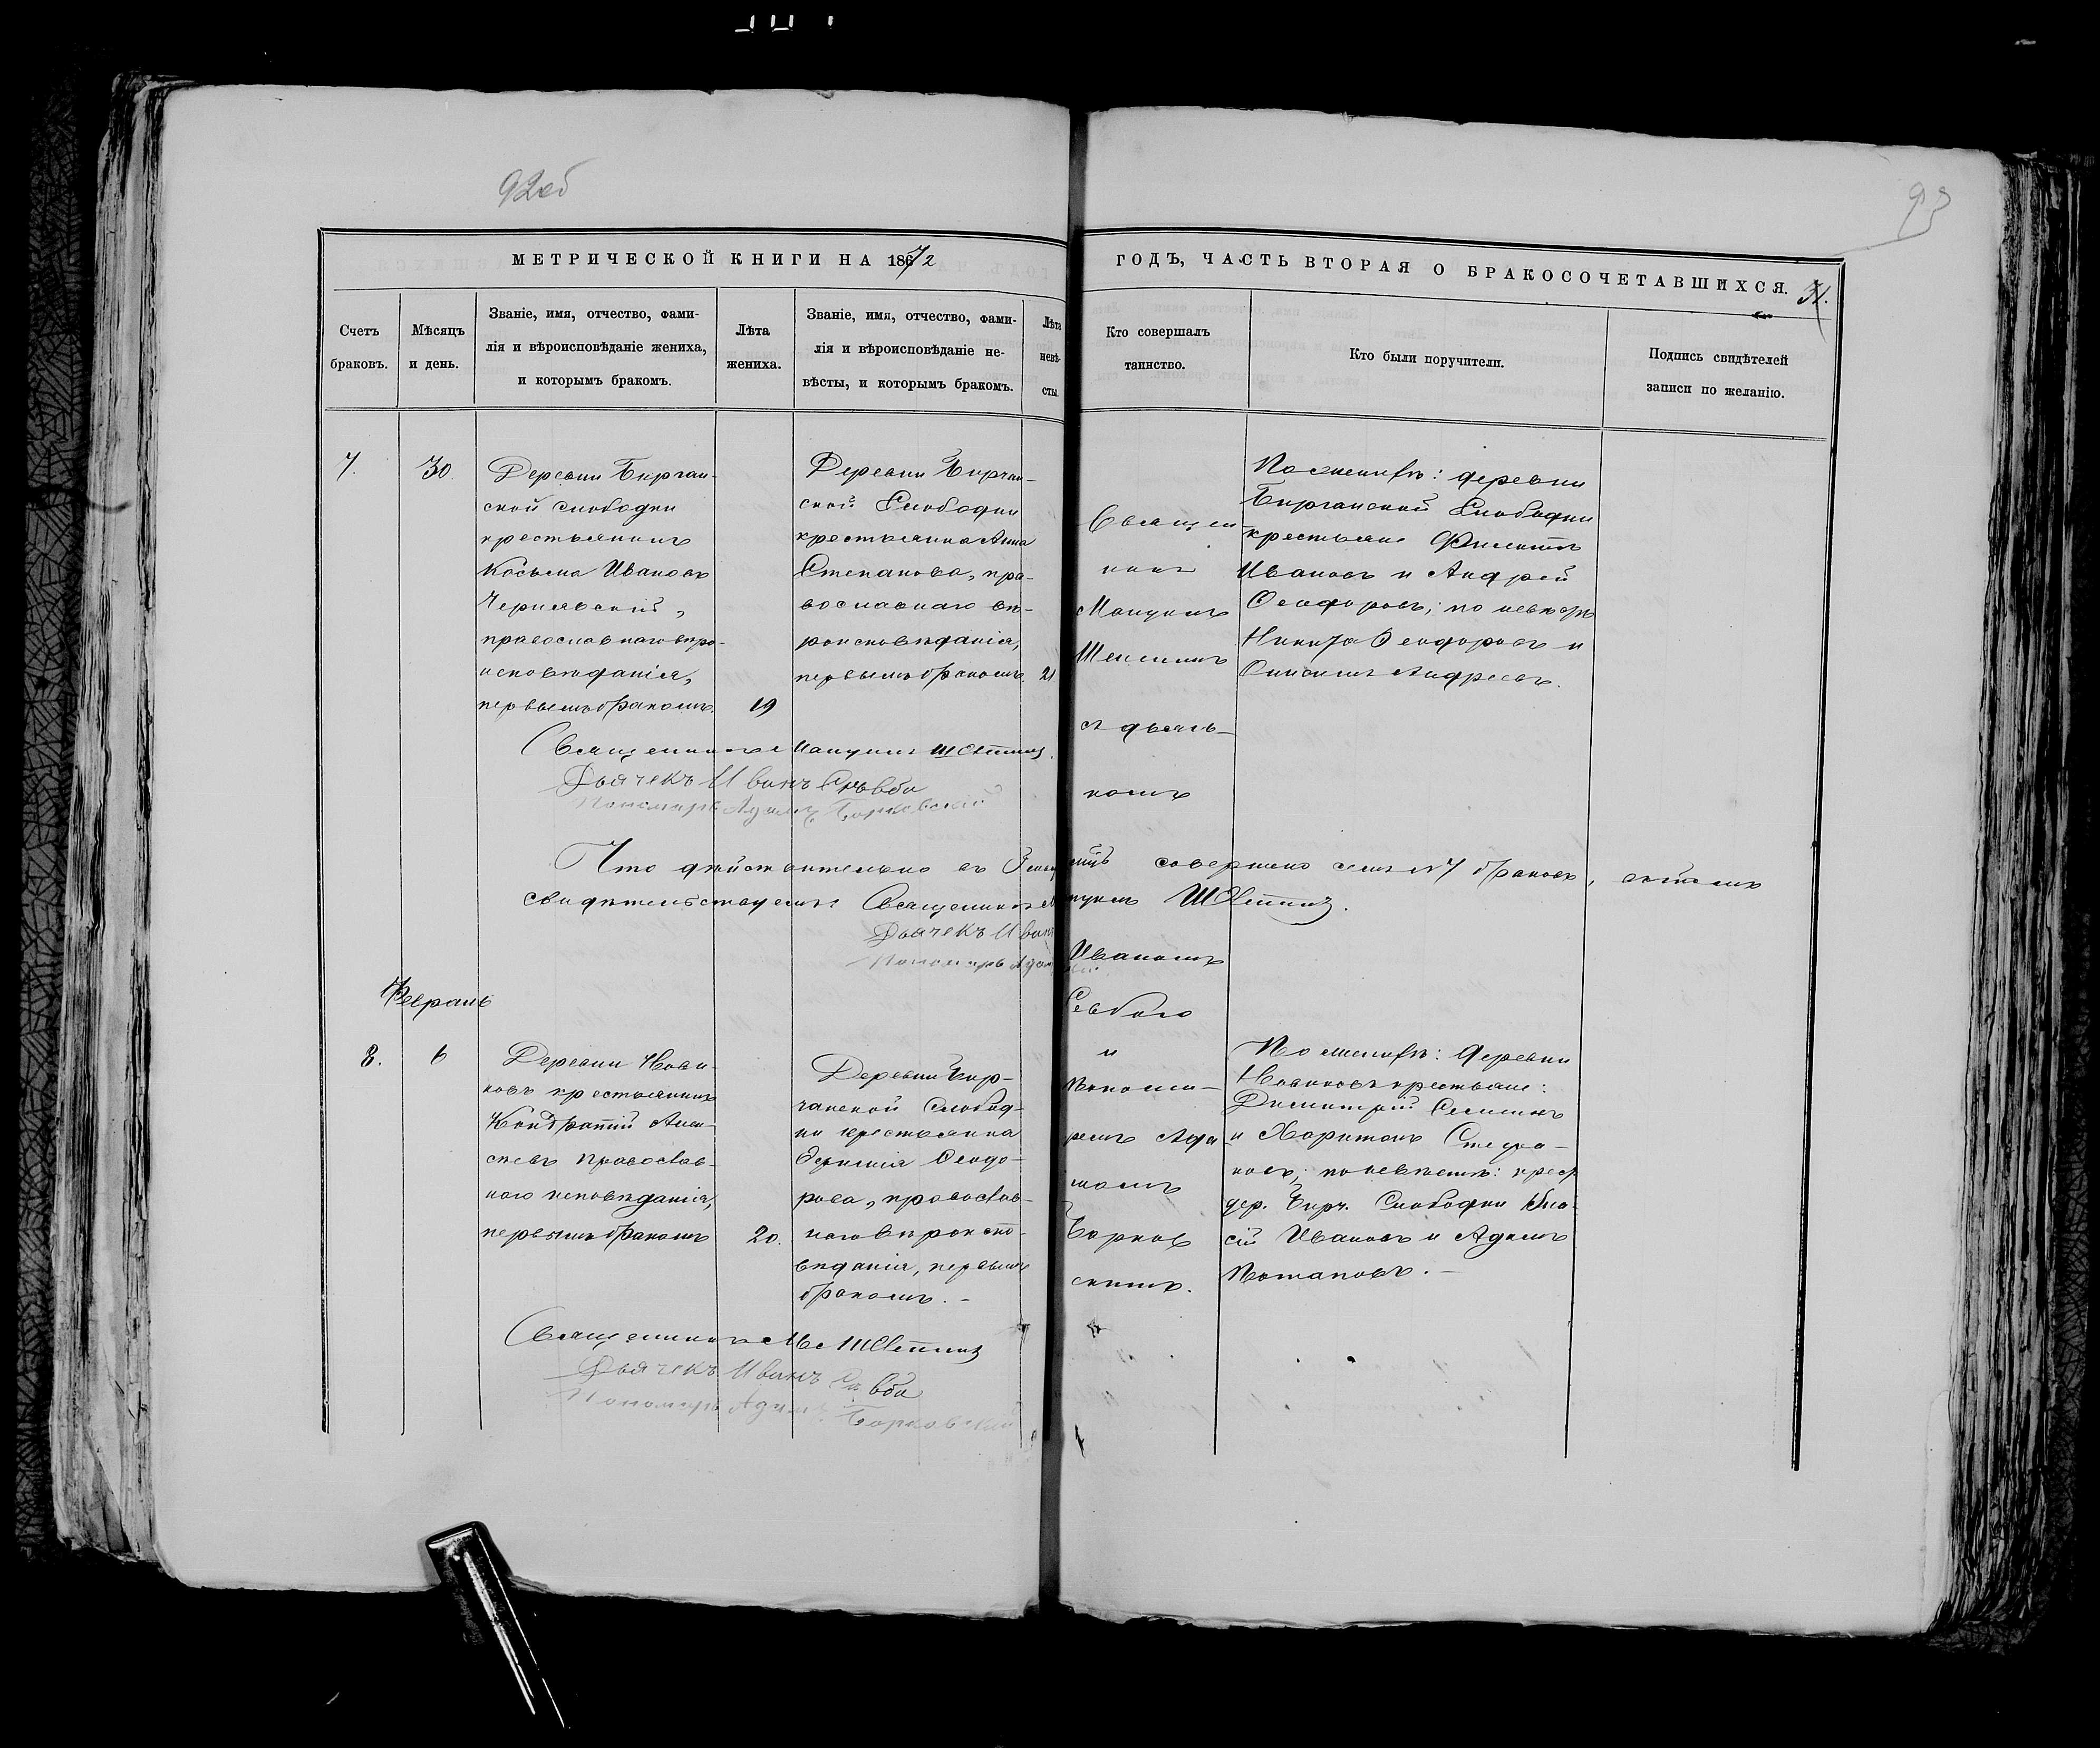 92об
93
МЕТРИЧЕСКОЙ КНИГИ НА 1872
ГОДЪ, ЧАСТЬ ВТОРАЯ О БРАКОСОЧЕТАВШИХСЯ.
31.
Счетъ
браковъ.
Мѣсяцъ
и день.
Званіе, имя, отчество, фами-
лія и вѣроисповѣданіе жениха,
и которымъ бракомъ.
Лѣта
жениха.
Званіе, имя, отчество, фами-
лія и вѣроисповѣданіе не-
вѣсты, и которымъ бракомъ.
Лѣта
невѣ-
сты.
Кто совершалъ
таинство.
Кто были поручители.
Подпись свидѣтелей
записи по желанію.
7.
30.
Деревни Бирчан-
ской слободки
крестьянинъ
Косьма Ивановъ
Чернявскій,
православнаго вѣро-
исповѣданія,
первымъ бракомъ.
19
Деревни Бирчан-
ской Слободки
крестьянка Анна
Степанова, пра-
вославнаго вѣ-
роисповѣданія,
первымъ бракомъ.
21
Священ-
никъ
с дьяч-
комъ
Иваномъ
и
Поном-
ремъ Ада-
момъ
Борков-
скимъ.
По женихѣ: деревни
Бирчанской Слободки
крестьяне
Ивановъ и Андрей
Ѳеодоровъ; по невѣстѣ
Никита Ѳеодоровъ и
Андреевъ.
Священникъ
Дьячекъ Иванъ
Пономарь Адамъ Борковскій
Что дѣйствительно въ совершено семь №7 браковъ, въ томъ
свидѣтельствуемъ: Священникъ
Дьячекъ Иванъ
Пономарь Адам
Февраль
8.
6
Деревни Нови-
ковъ крестьянинъ
Кондратій Алек-
сѣевъ православ-
наго исповѣданія,
первымъ бракомъ
20.
Деревни Бир-
чанской Слобод-
ки крестьянка
Ѳеодо-
рова, православ-
наго вѣроиспо-
вѣданія, первымъ
бракомъ. -
По женихѣ: деревни
Новиковъ крестьяне:
Димитрій
и Харитонъ Стефа-
новъ; по невѣстѣ: крест
дер. Бирч. Слободки
Ивановъ и Адамъ
Потаповъ. -
Священникъ
Дьячекъ Иванъ
Пономарь Адамъ Борковскій